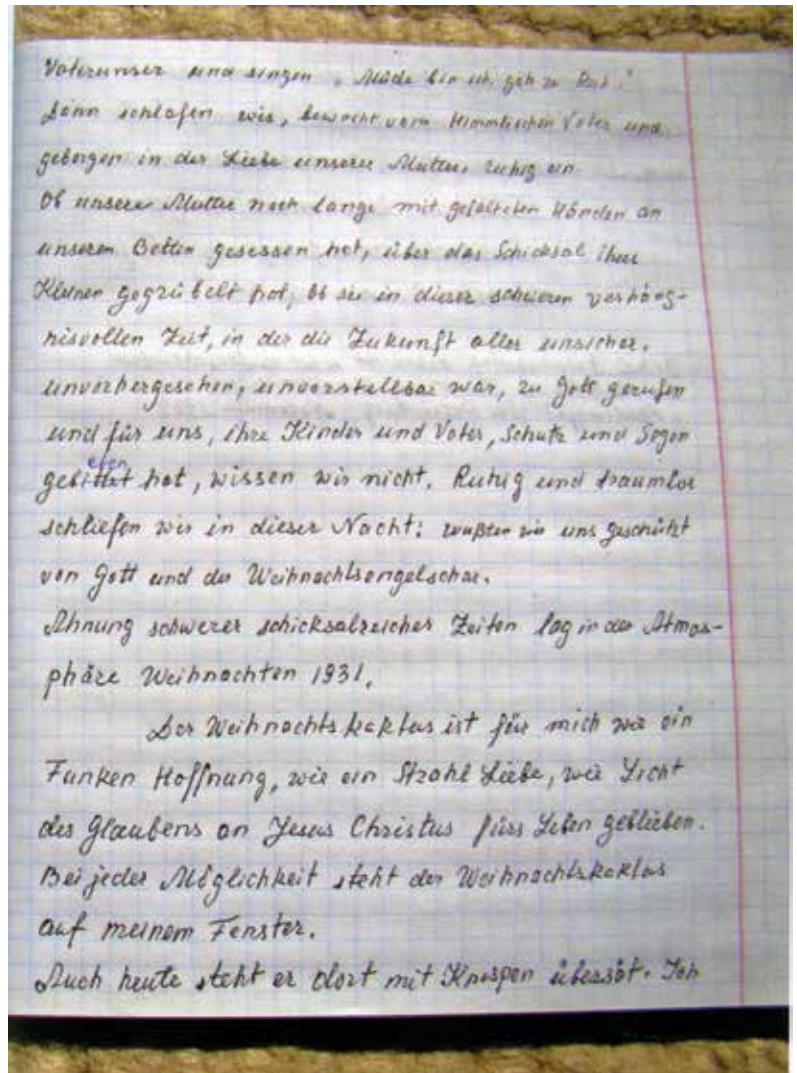 Vaterunser und singen „Müde bin ich geh zu Ruh."
Dann schlafen wir, bewacht vom Himmlischen Vater und
geborgen in der Liebe unserer Mutter, ruhig ein.
Ob unsere Mutter noch lange mit gefalteten Händen an
unseren Betten gesessen hat, über das Schicksal ihrer
Kleinen gegrübelt hat, ob sie in dieser schweren verhäng-
nisvollen Zeit, in der die Zukunft aller unsicher,
unvorhergesehen, unvorstellbar war, zu Gott gerufen
und für uns, ihre Kinder und Vater, Schutz und Segen
gebeten hat, wissen wir nicht. Ruhig und traumlos
schliefen wir in dieser Nacht: wußten wir uns geschützt
von Gott und der Weihnachtsengelschar.
Ahnung schwerer schicksalreicher Zeiten lag in der Atmos-
phäre Weihnachten 1931.
Der Weihnachtskaktus ist für mich wie ein
Funken Hoffnung, wie ein Strahl Liebe, wie Licht
des Glaubens an Jesus Christus fürs Leben geblieben.
Bei jeder Möglichkeit steht der Weihnachtskaktus
auf meinem Fenster.
Auch heute steht er dort mit Knospen übersät. Ich